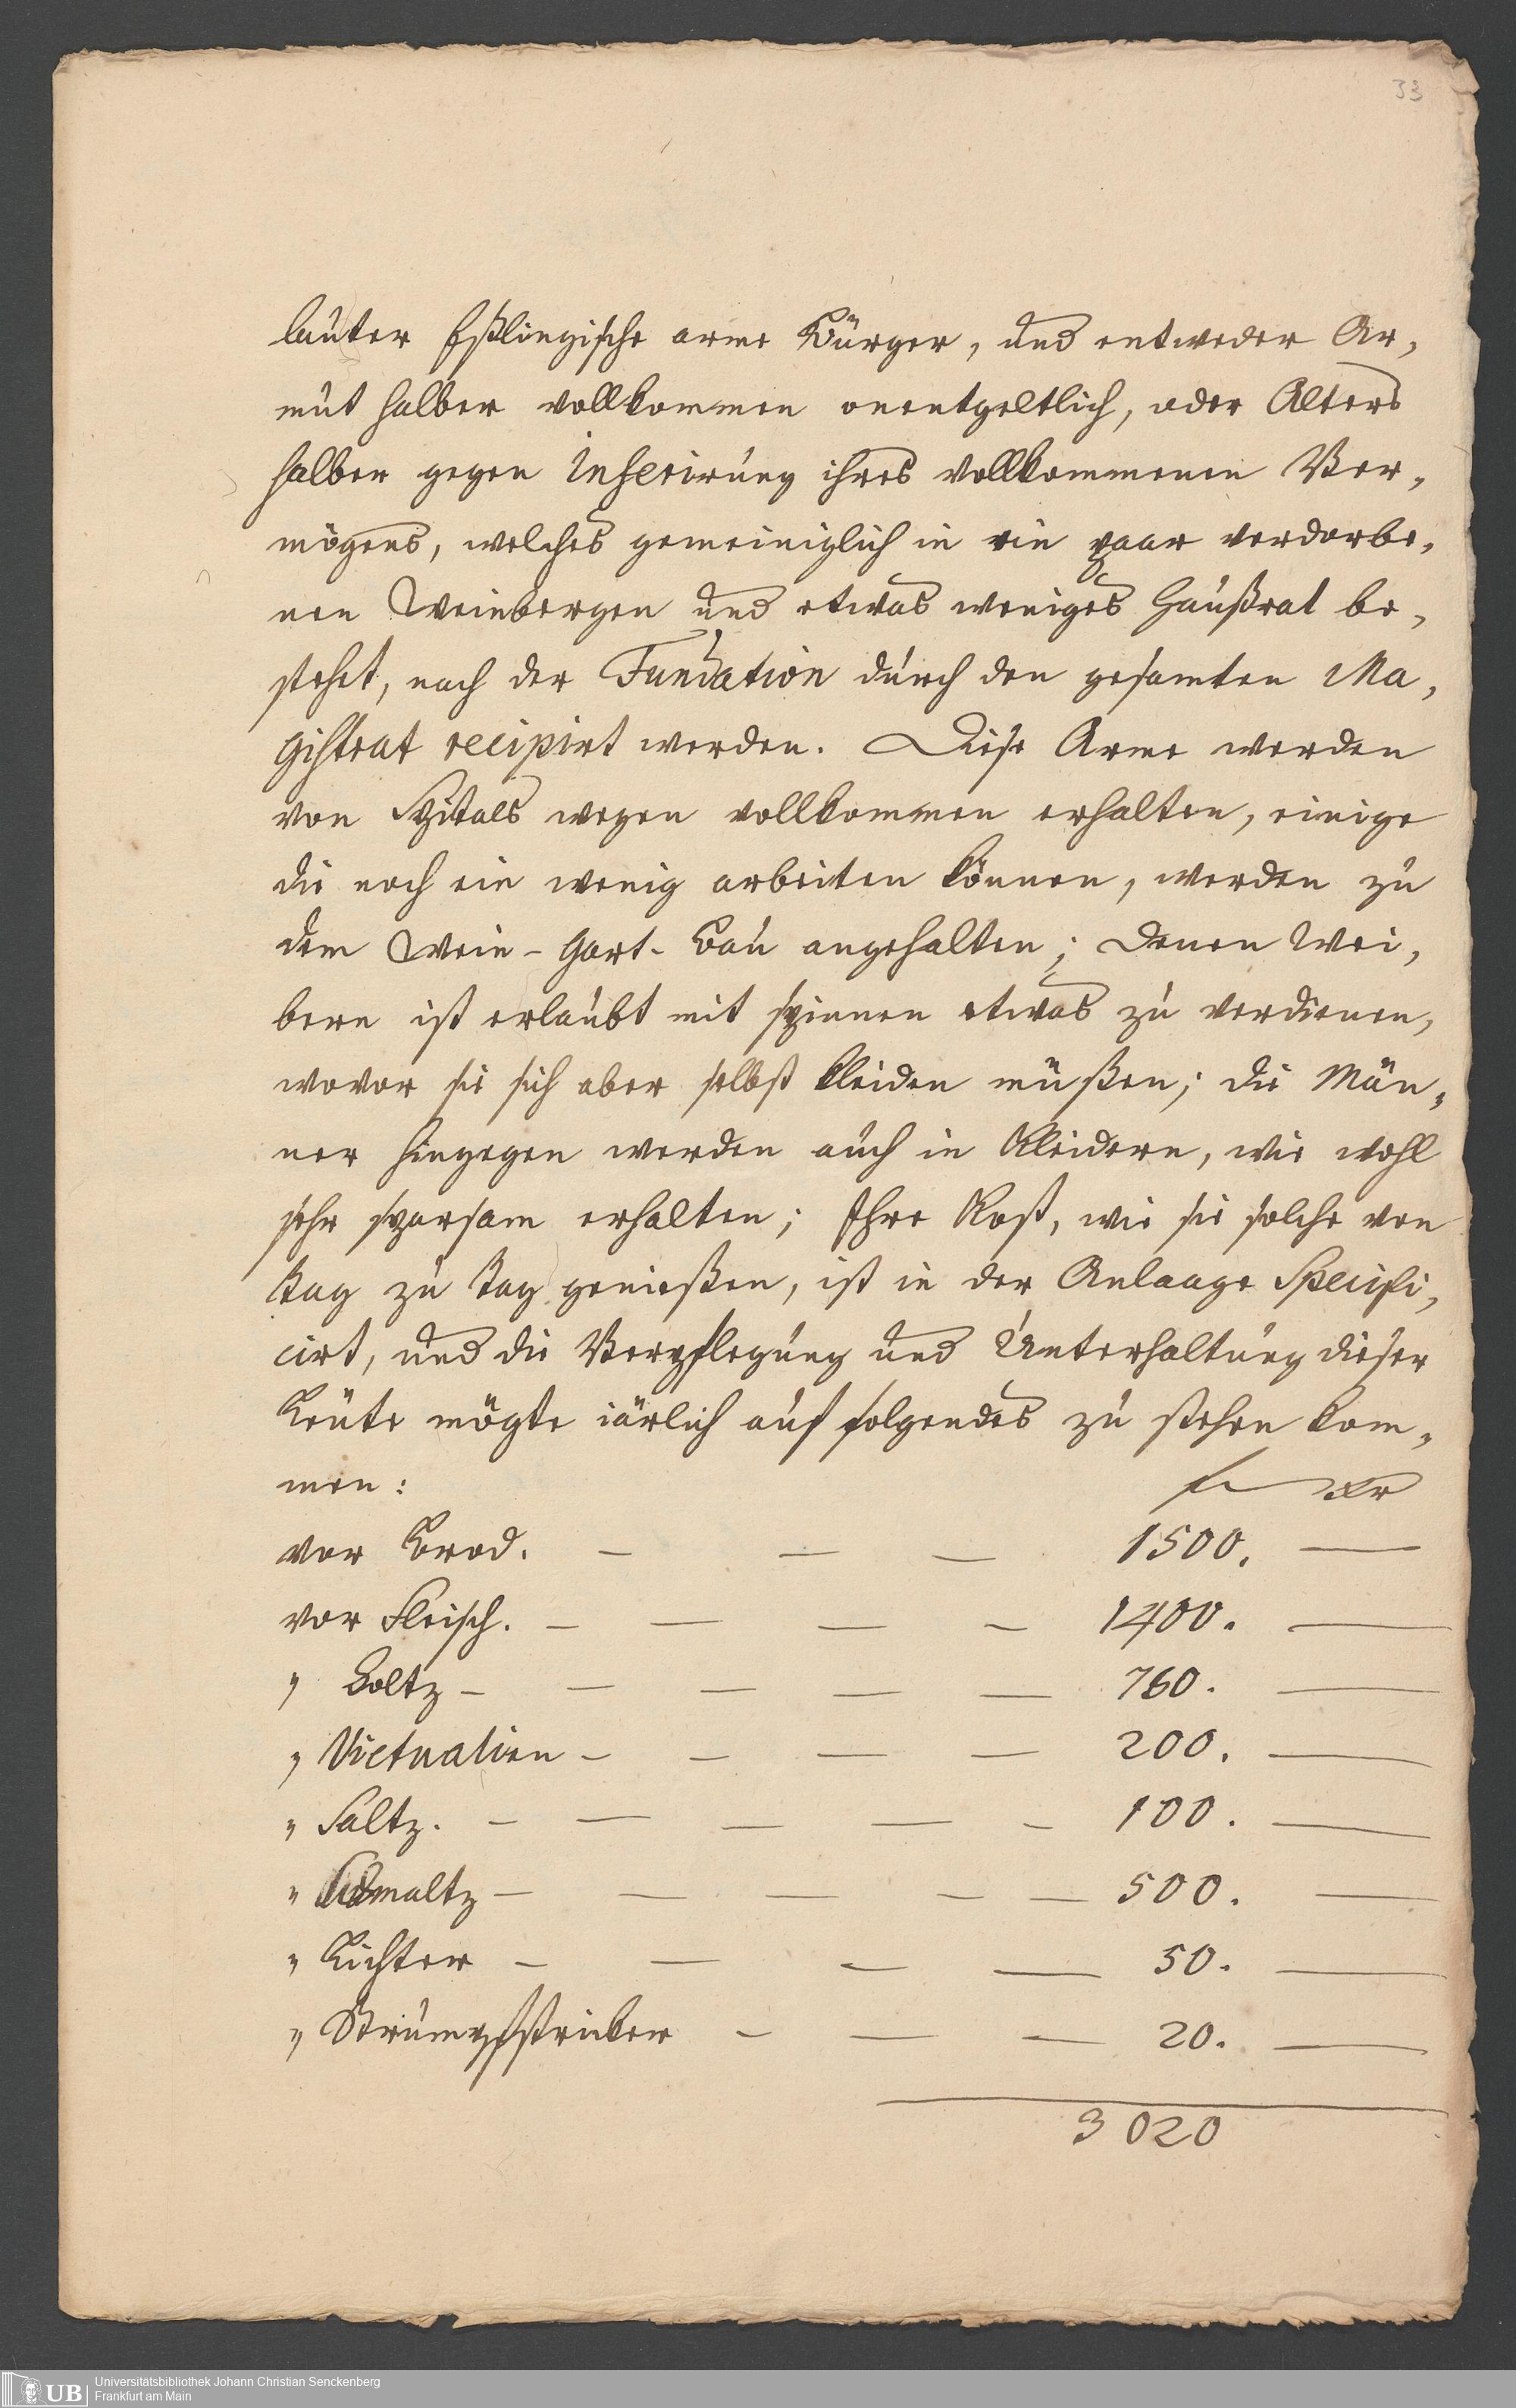 33
lauter Eßlingische arme Bürger, und entweder Ar„
mut halber vollkommen onentgeltlich, oder Alters
halber gegen Inferirung ihres vollkommenen Ver„
mögens, welches gemeiniglich in ein paar verdorbe„
nen Weinbergen und etwas weniges Haußrat be„
stehet, nach der Fundation durch den gesamten Ma„
gistrat recipirt werden. Diese Arme werden
von Spitals wegen vollkommen erhalten, einige
die noch ein wenig arbeiten können, werden zu
dem Wein-Gart-Bau angehalten; denen Wei„
bern ist erlaubt mit spinnen etwas zu verdienen,
wovor sie sich aber selbst kleiden müßen; die Män„
ner hingegen werden auch in Kleidern, wie wohl
sehr sparsam erhalten; Ihre Kost, wie sie solche von
tag zu tag genießen, ist in der Anlaage Specifi„
cirt, und die Verpflegung und Unterhaltung dieser
Leute mögte iärlich auf folgendes zu stehen kom„
men: f xr
vor Brod. — — — 1500. —
vor Fleisch. — — — — 1400. —
„ Holtz — — — — — 760. —
„ Victualien — — — — 200. —
„ Saltz. — — — — — 100. —
„ Schmaltz — — — — — 500. —
„ Lichter — — — — 50. —
„ Strümpfstricker — — — 20. —
3020
UB Universitätsbibliothek Johann Christian Senckenberg
Frankfurt am Main